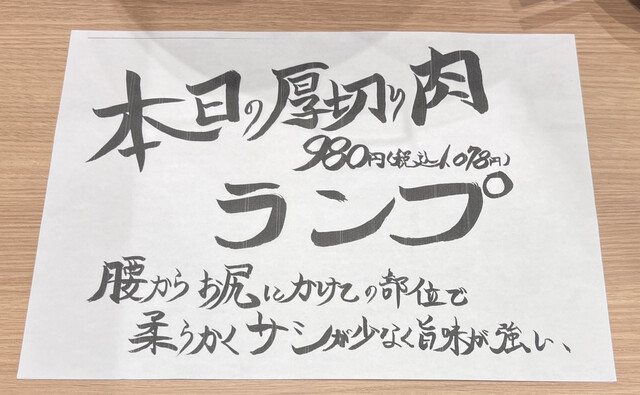 本日の厚切り肉
980円(税込1,078円)
ランプ
腰からお尻にかけての部位で
柔らかくサシが少なく旨味が強い、